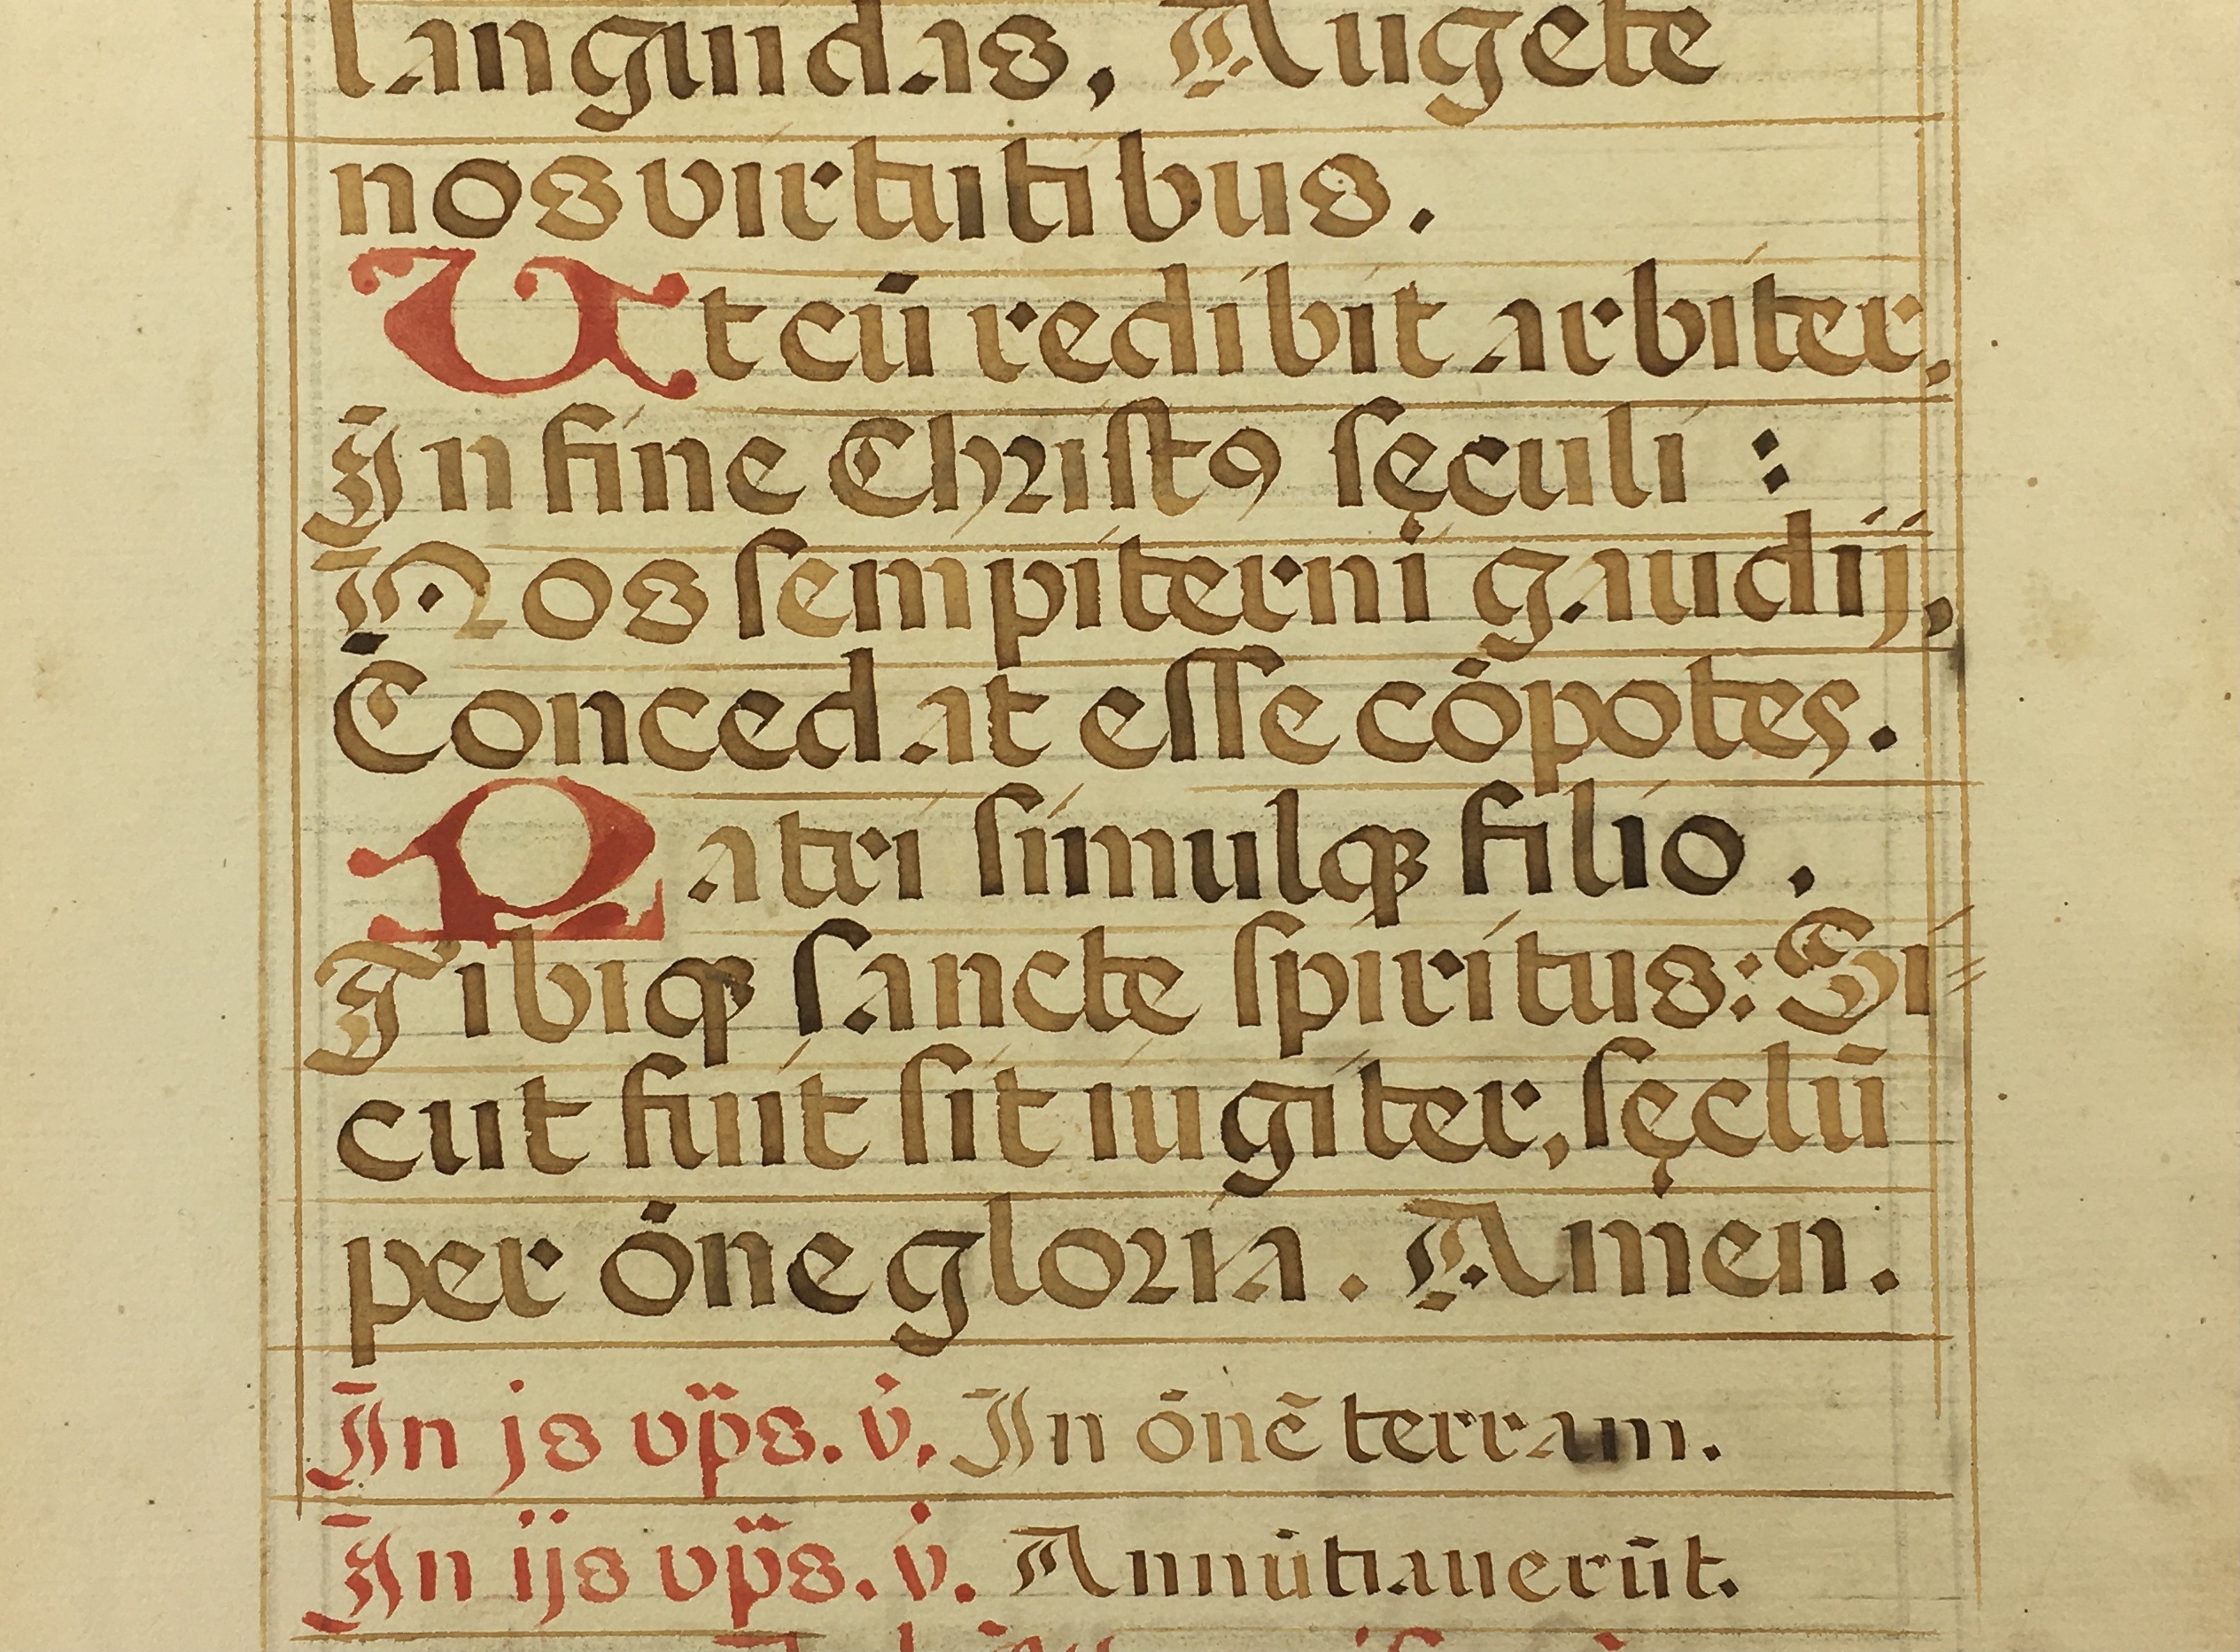 languidas, Augete
nos virtutibus.
Ut cū redibit arbiter,
In fine Christꝯ sęculi :
Nos sempiterni gaudij,
Concedat esse cōpotes.
Patri simulqꝫ filio.
Tibiqꝫ sancte spiritus: Si=
cut fuit sit iugiter, sęclū
per ōne gloria. Amen.
In js vp̄s. v̇. In ōnē terram.
In ijs vp̄s. v̇. Annūtiauerūt.